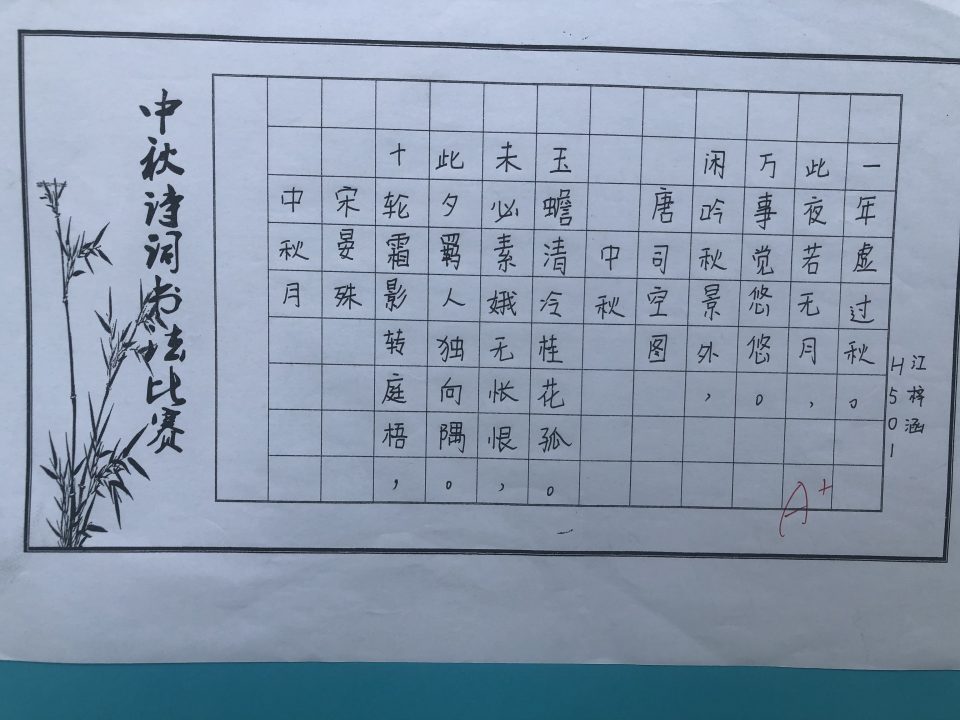 中秋诗词书法比赛
中秋月
宋晏殊
十轮霜影转庭梧，
此夕羁人独向隅。
未必素娥无怅恨，
玉蟾清冷桂花孤。
中秋
唐司空图
闲吟秋景外，
万事觉悠悠。
此夜若无月，
一年虚过秋。
H501
江梓涵
A+